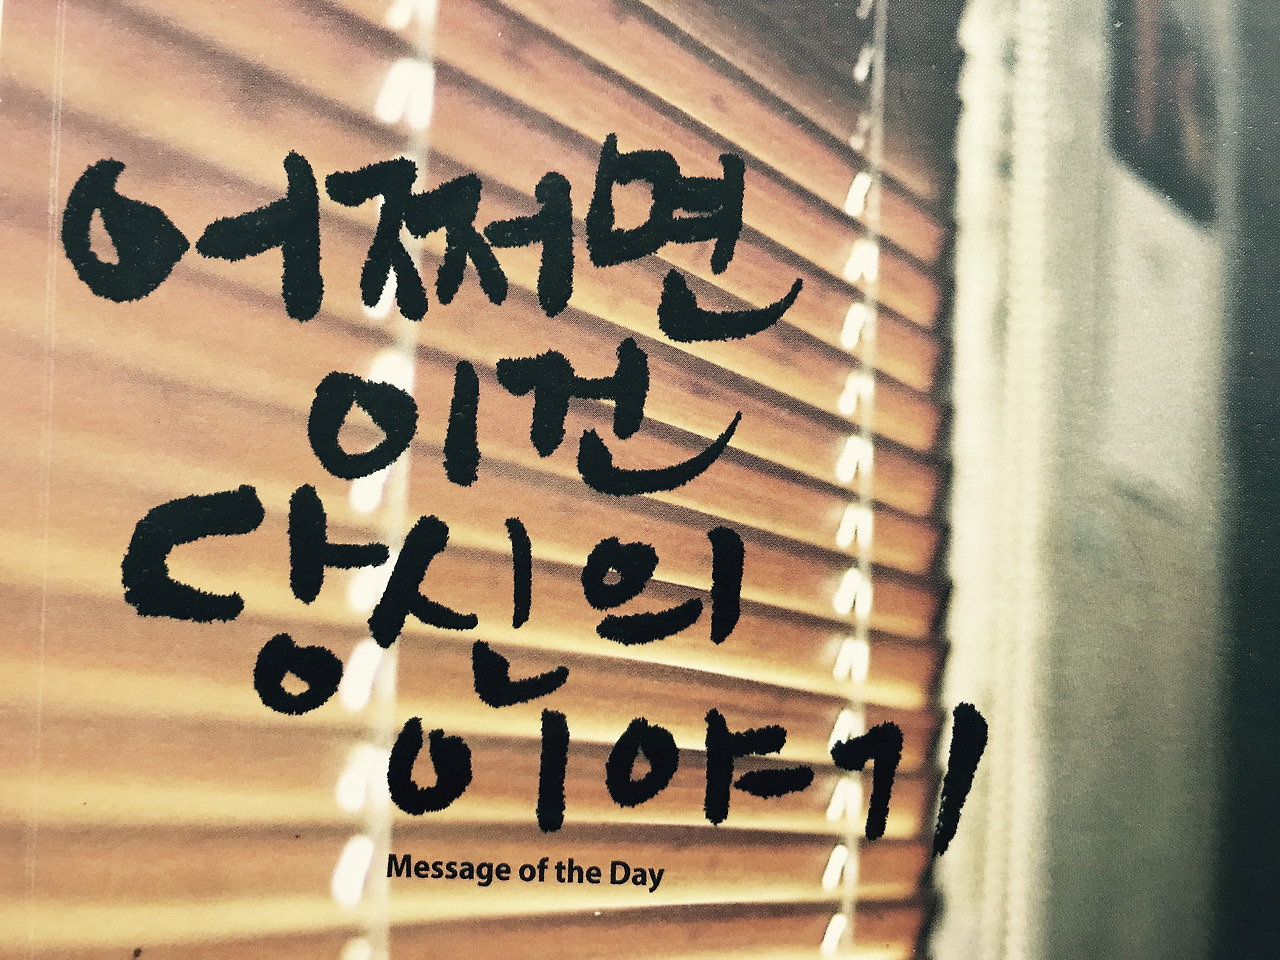 어쩌면
이건
당신의
이야기
Message of the Day